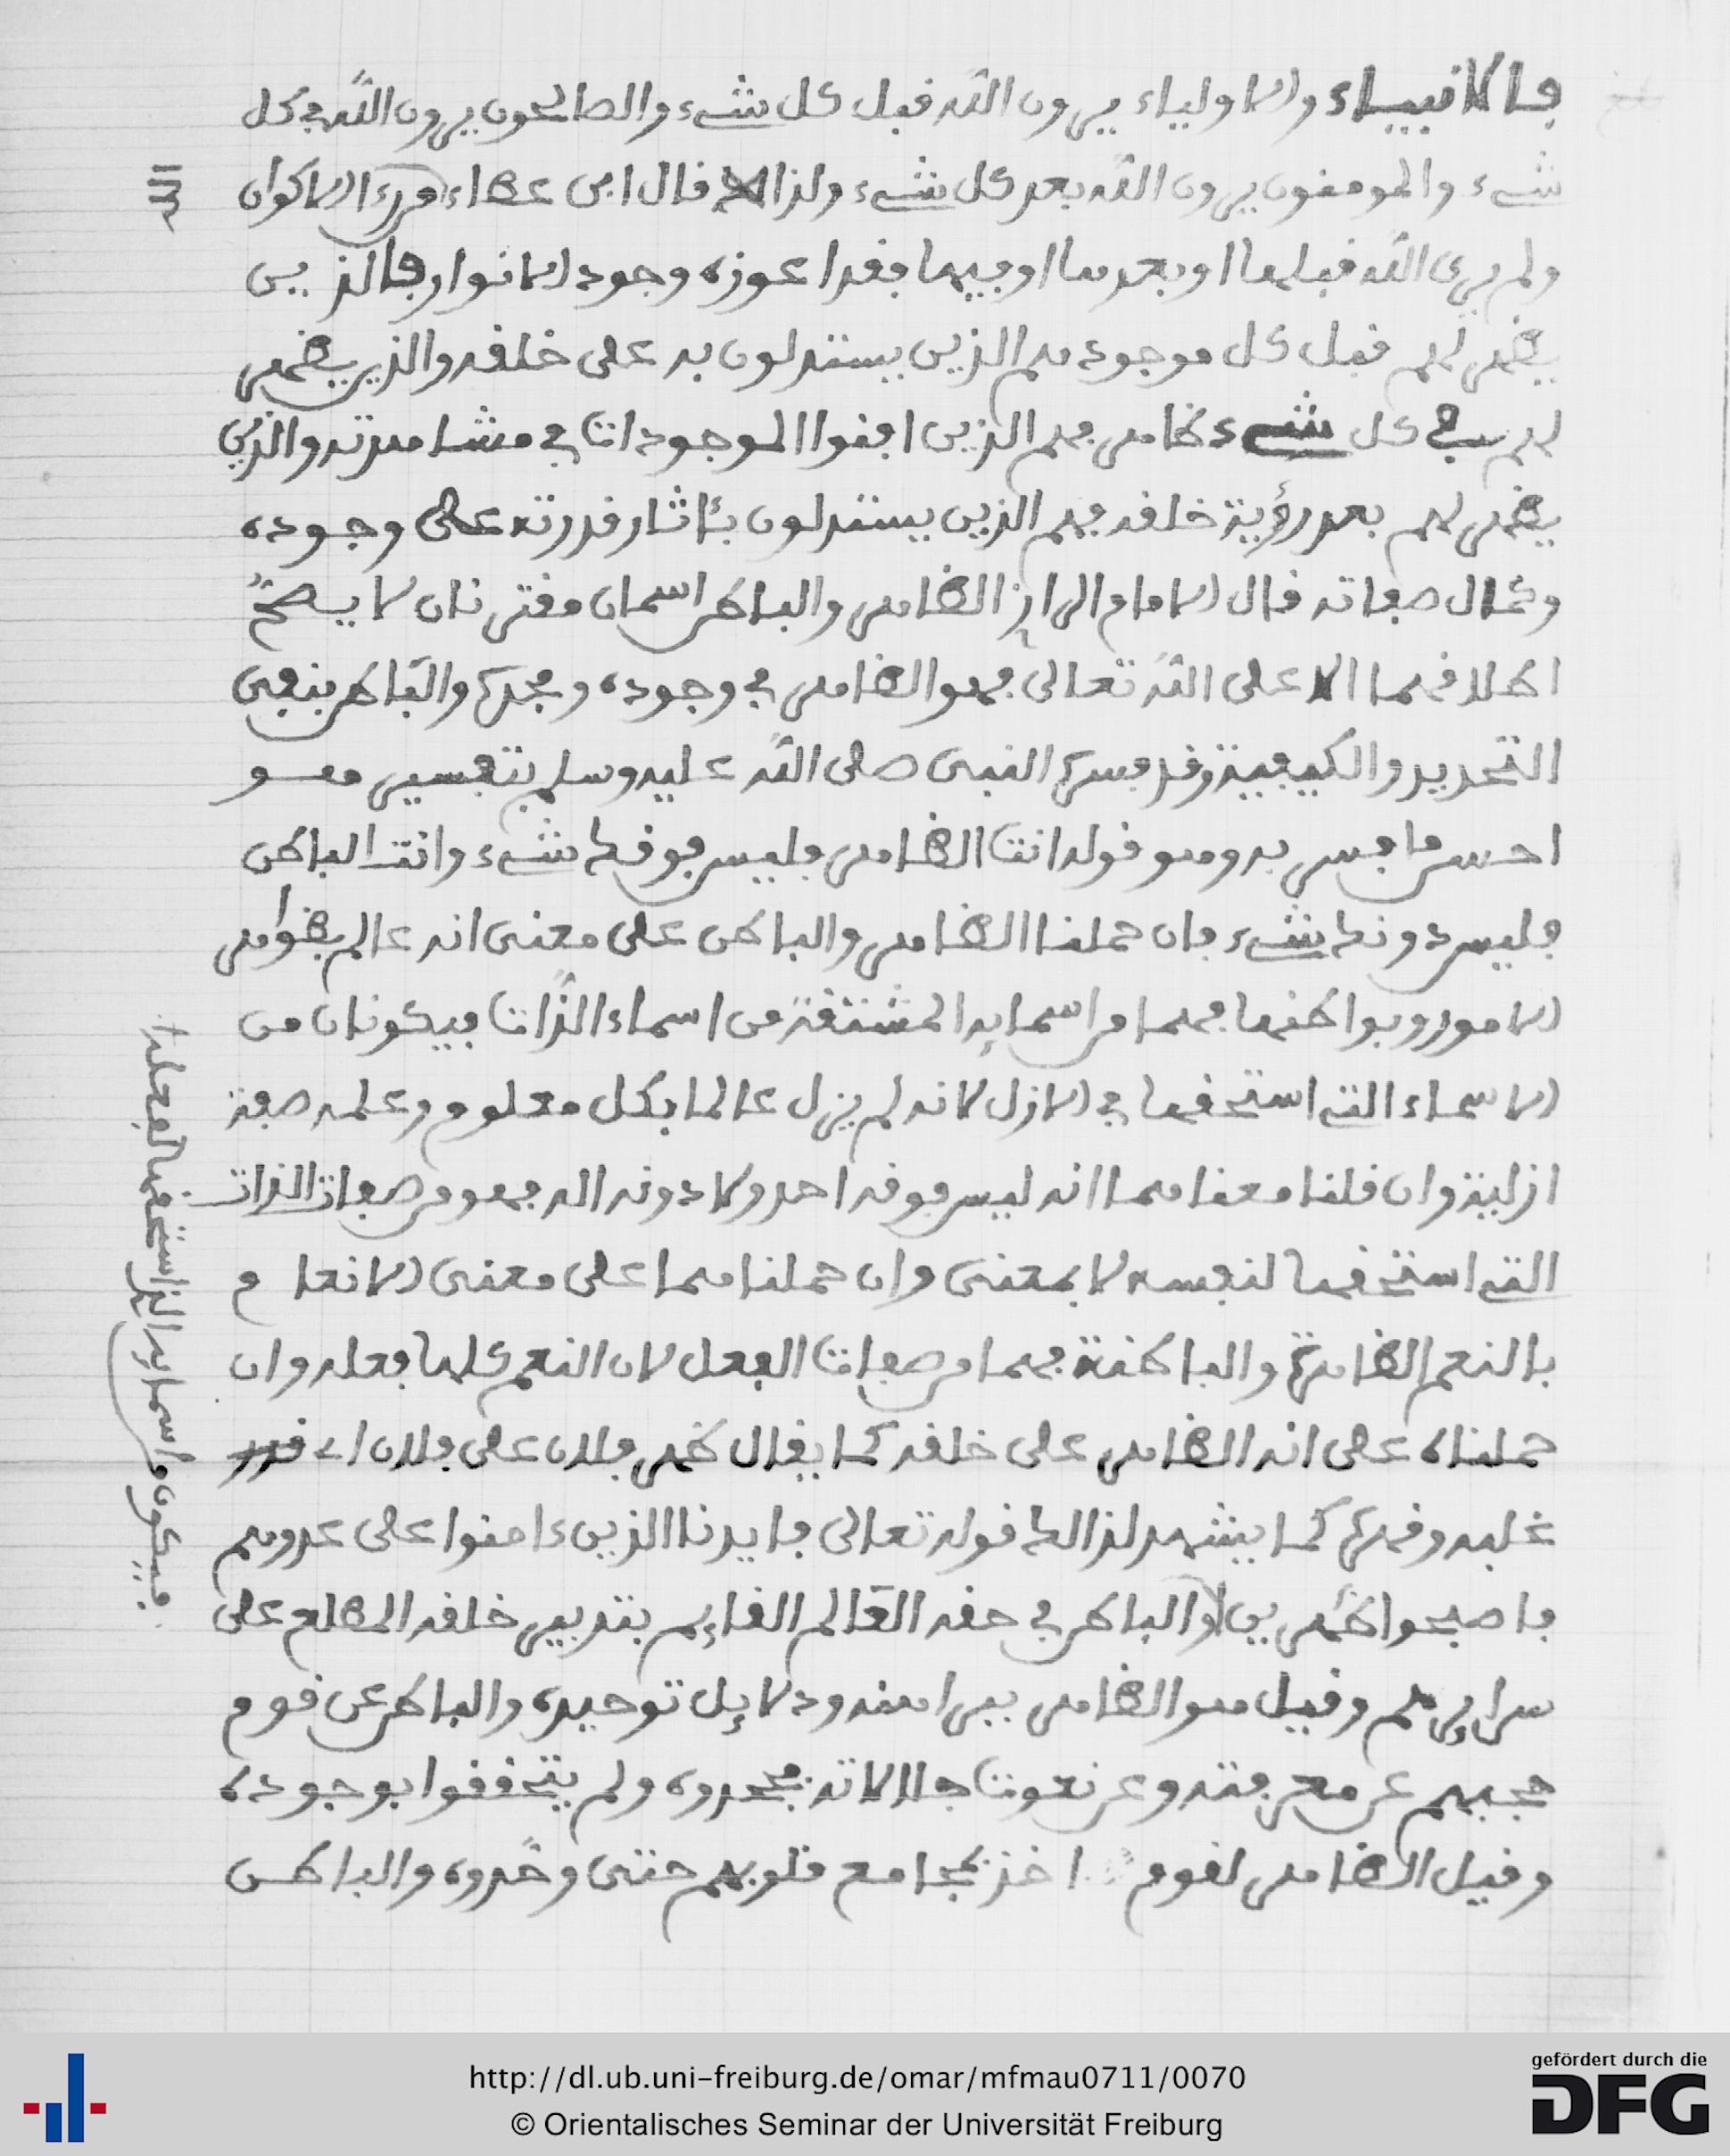 فالانبياء والاولياء يرون الله قبل كل شيء والصالحون يرون الله في كل
شيء والمومنون يرون الله بعد كل شيء ولذا قال ابن عطاء من رءا الاكوان
ولم يرى الله قبلها او بعدها او فيها فقد اعوزه وجود الانوار فالذين
يظهر لهم قبل كل موجود هم الذين يستدلون به على خلقه والذين يظهر
لهم في كل شيء ظاهر فهم الذين افنوا الموجودات في مشاهدته والذين
يظهر لهم بعد رؤية خلقه فهم الذين يستدلون بئاثار قدرته على وجوده
وكمال صفاته قال الامام الراز الظاهر والباطن اسمان مقترنان لا يصح
اطلاقهما الا على الله تعالى فهو الظاهر في وجوده ومجده والباطن بنفي
التحديد والكيفية وقد فسره النبي صلى الله عليه وسلم بتفسير هو
احسن ما فسر به وهو قوله انت الظاهر فليس فوقك شيء وانت الباطن
فليس دونك شيء فان حملنا الظاهر والباطن على معنى انه عالم بظواهر
الامور وبواطنها فهما من اسمايه المشتقة من اسماء الذات فيكونان من
الاسماء التي استحقها في الازل لانه لم يزل عالما بكل معلوم وعلمه صفة
ازلية وان قلنا معناهما انه ليس فوقه احد ولا دونه اله فهو من صفات الذات
التي استحقها لنفسه لا بمعنى وان حملناهما على معنى الانعام
بالنعم الظاهرة والباطنة فهما من صفات الفعل لان النعم كلها فعله وان
حملناه على انه الظاهر على خلقه كما يقال ظهر فلان على فلان اي قدر
عليه وقهره كما يشهد لذالك قوله تعالى فايدنا الذين ءامنوا على عدوهم
فاصبحوا ظهرين والباطن في حقه العالم القايم بتدبير خلقه المطلع على
سرايرهم وقيل هو الظاهر ببراهنه ودلايل توحيده والباطن عن قوم
حجبهم عن معرفته وعن نعوت جلالاته فجحدوه ولم يتحققوا بوجوده
وقيل الظاهر لقوم اخذ بمجامع قلوبهم حتى وحدوه والباطن
فيكون من اسمايه التي استحقها لفعله
http://dl.ub.uni-freiburg.de/omar/mfmau0711/0070
© Orientalisches Seminar der Universität Freiburg
gefördert durch die
DFG